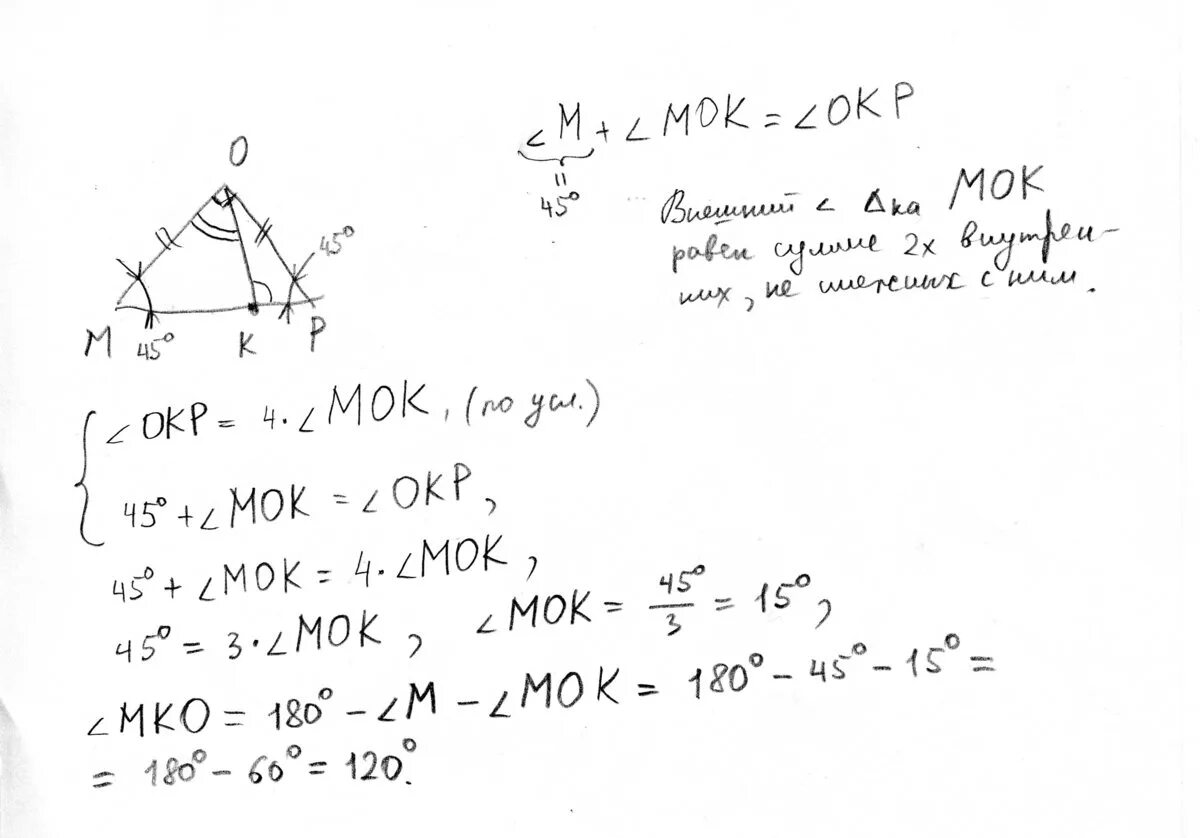 O
45°
M 45° K P
∠M + ∠MOK = ∠OKP
45°
Внешний ∠ Δка MOK
равен сумме 2х внутрен-
них, не смежных с ним.
∠OKP = 4·∠MOK, (по усл.)
45° + ∠MOK = ∠OKP,
45° + ∠MOK = 4·∠MOK,
45° = 3·∠MOK, ∠MOK = 45°/3 = 15°,
∠MKO = 180° - ∠M - ∠MOK = 180° - 45° - 15° =
= 180° - 60° = 120°.